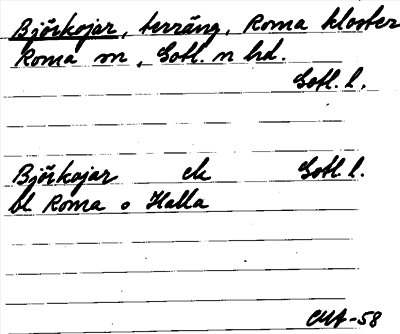 Björkojar, terräng, Roma kloster
Roma sn, Gotl. n hd.
Gotl. l.
Björkojar ek Gotl. l.
bl Roma o Halla
-58